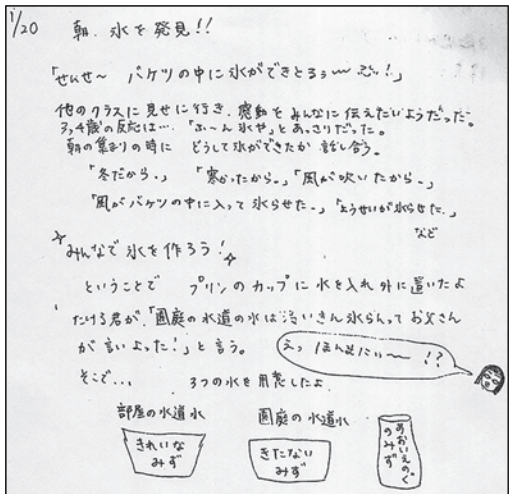 1/20 朝、氷を発見!!
「せんせ〜 バケツの中に氷ができとるぅ〜 !」
他のクラスに見せに行き、感動をみんなに伝えたいようだった。
3,4歳の反応は…「ふ〜ん氷や」とあっさりだった。
朝の集まりの時に どうして氷ができたか 話し合う。
「冬だから。」 「寒かったから。」「風が吹いたから。」
「風がバケツの中に入って氷らせた。」「ようせいが氷らせた。」
など
みんなで氷を作ろう!
ということで プリンのカップに水を入れ外に置いたよ
たける君が、「園庭の水道の水は汚いきん氷らんってお父さん
が言いよった!」と言う。
えっ ほんまにぃ〜 !?
そこで… 3つの水を用意したよ
部屋の水道水 園庭の水道水
きれいな
みず
きたない
みず
あおいえのぐ
のみず